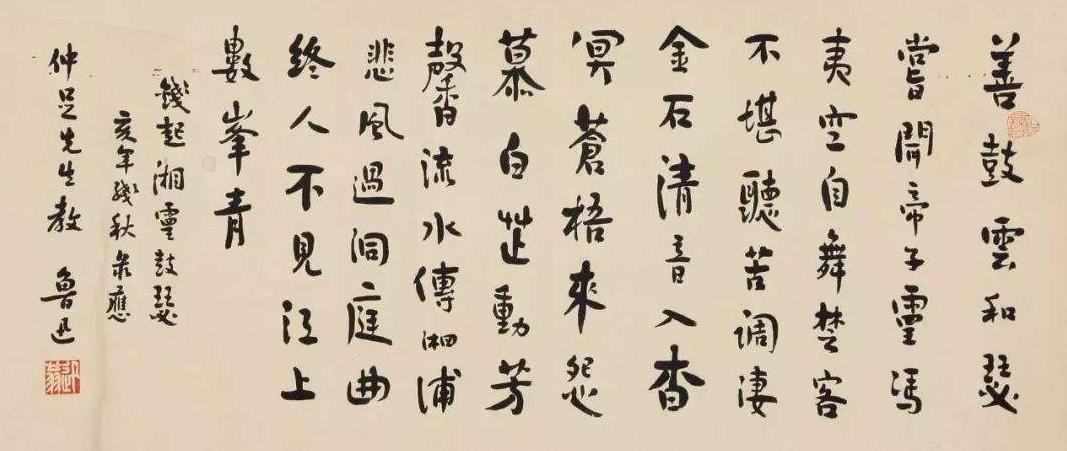 善鼓雲和瑟
嘗聞帝子靈馮
夷空自舞楚客
不堪聽苦調淒
金石清音入杳
冥蒼梧來怨
慕白芷動芳
馨流水傳湘浦
悲風過洞庭曲
終人不見江上
數峯青
錢起湘靈鼓瑟
亥年殘秋彔應
仲足先生教 魯迅